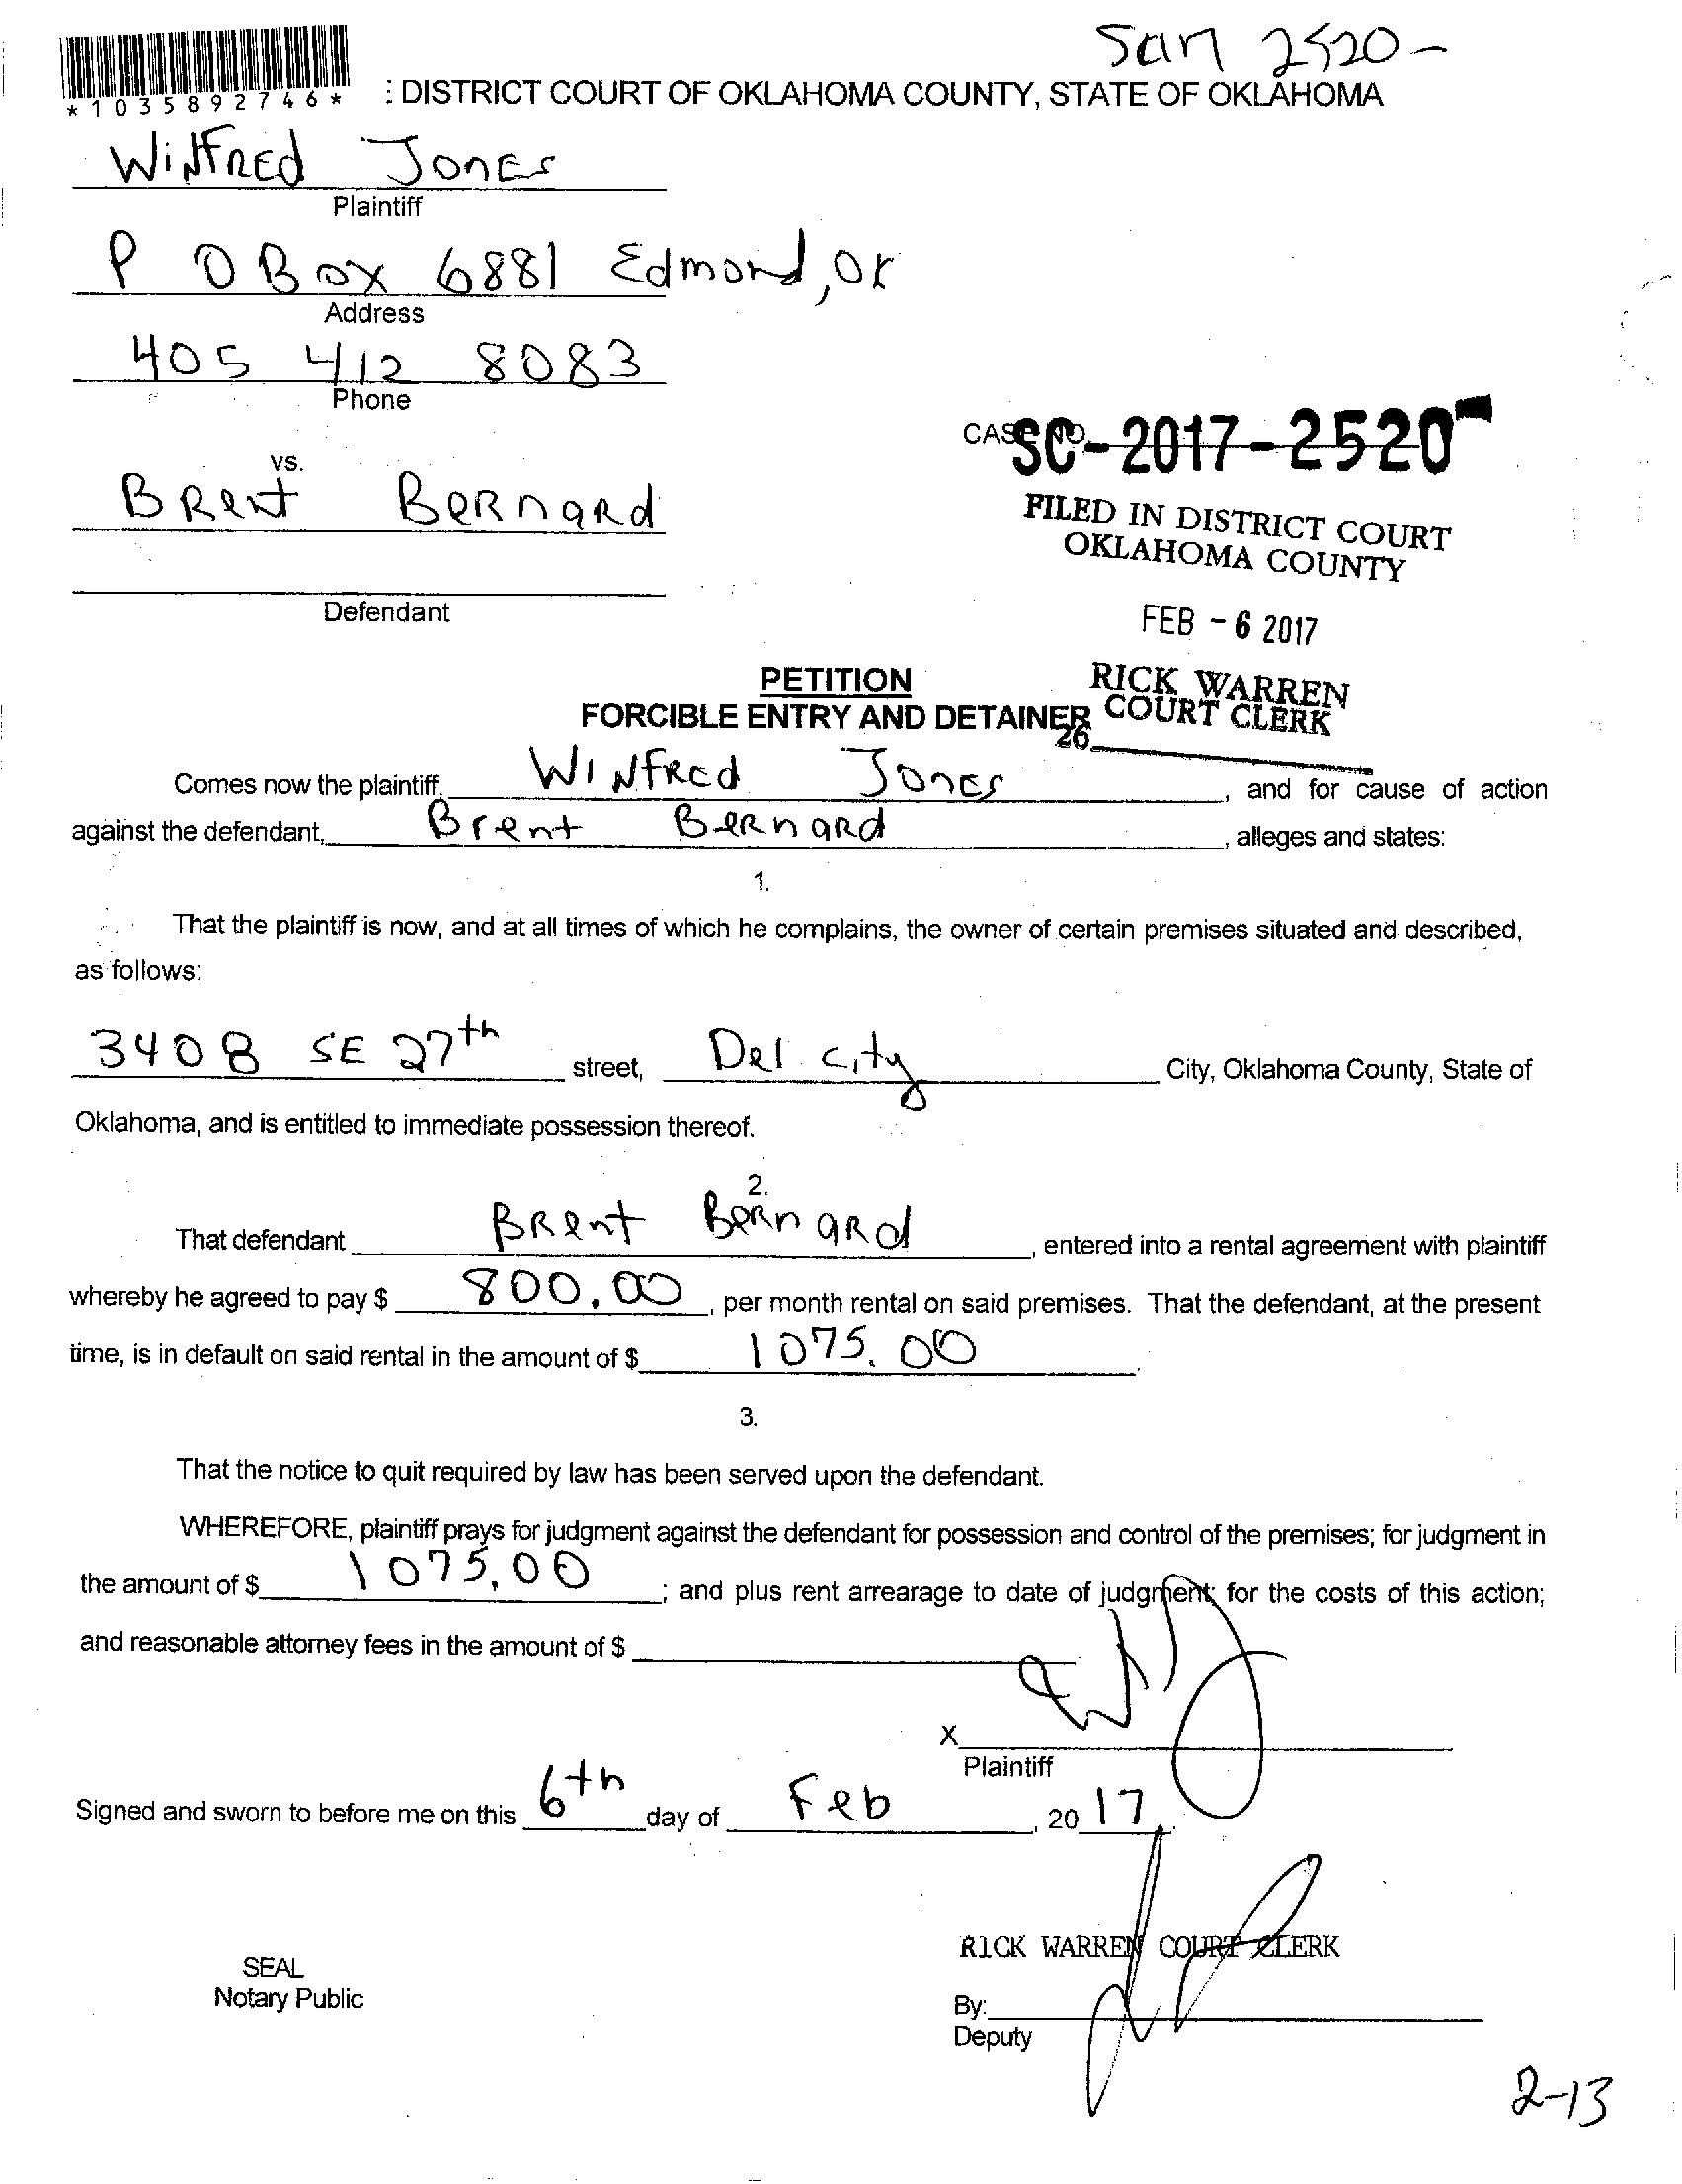 San 2520-
*1035892746*
: DISTRICT COURT OF OKLAHOMA COUNTY, STATE OF OKLAHOMA
Winfred Jones
Plaintiff
P O Box 6881 Edmond, OK
Address
405 412 8083
Phone
CASE NO.
SC-2017-2520
vs.
Brent Bernard
FILED IN DISTRICT COURT
OKLAHOMA COUNTY
Defendant
FEB - 6 2017
PETITION
RICK WARREN
FORCIBLE ENTRY AND DETAINER
COURT CLERK
26
Comes now the plaintiff, Winfred Jones, and for cause of action
against the defendant, Brent Bernard, alleges and states:
1.
That the plaintiff is now, and at all times of which he complains, the owner of certain premises situated and described,
as follows:
3408 SE 27th street, Del City City, Oklahoma County, State of
Oklahoma, and is entitled to immediate possession thereof.
2.
That defendant Brent Bernard, entered into a rental agreement with plaintiff
whereby he agreed to pay $ 800.00, per month rental on said premises. That the defendant, at the present
time, is in default on said rental in the amount of $ 1075.00.
3.
That the notice to quit required by law has been served upon the defendant.
WHEREFORE, plaintiff prays for judgment against the defendant for possession and control of the premises; for judgment in
the amount of $ 1075.00; and plus rent arrearage to date of judgment; for the costs of this action;
and reasonable attorney fees in the amount of $
X
Plaintiff
Signed and sworn to before me on this 6th day of Feb, 20 17.
RICK WARREN COURT CLERK
SEAL
Notary Public
By:
Deputy
2-13